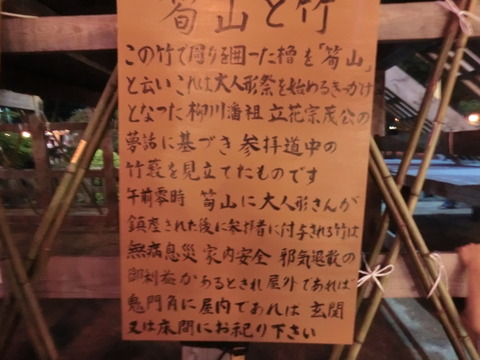 筍山と竹
この竹で周りを囲った櫓を「筍山」
と云いこれは大人形祭を始めるきっかけ
となった柳川藩祖 立花宗茂公の
夢話に基づき 参拝道中の
竹藪を見立てたものです
午前零時 筍山に大人形さんが
鎮座された後に参拝者に付与される竹は
無病息災 家内安全 邪気退散の
御利益があるとされ屋外であれば
鬼門角に屋内であれば 玄関
又は床間にお祀り下さい